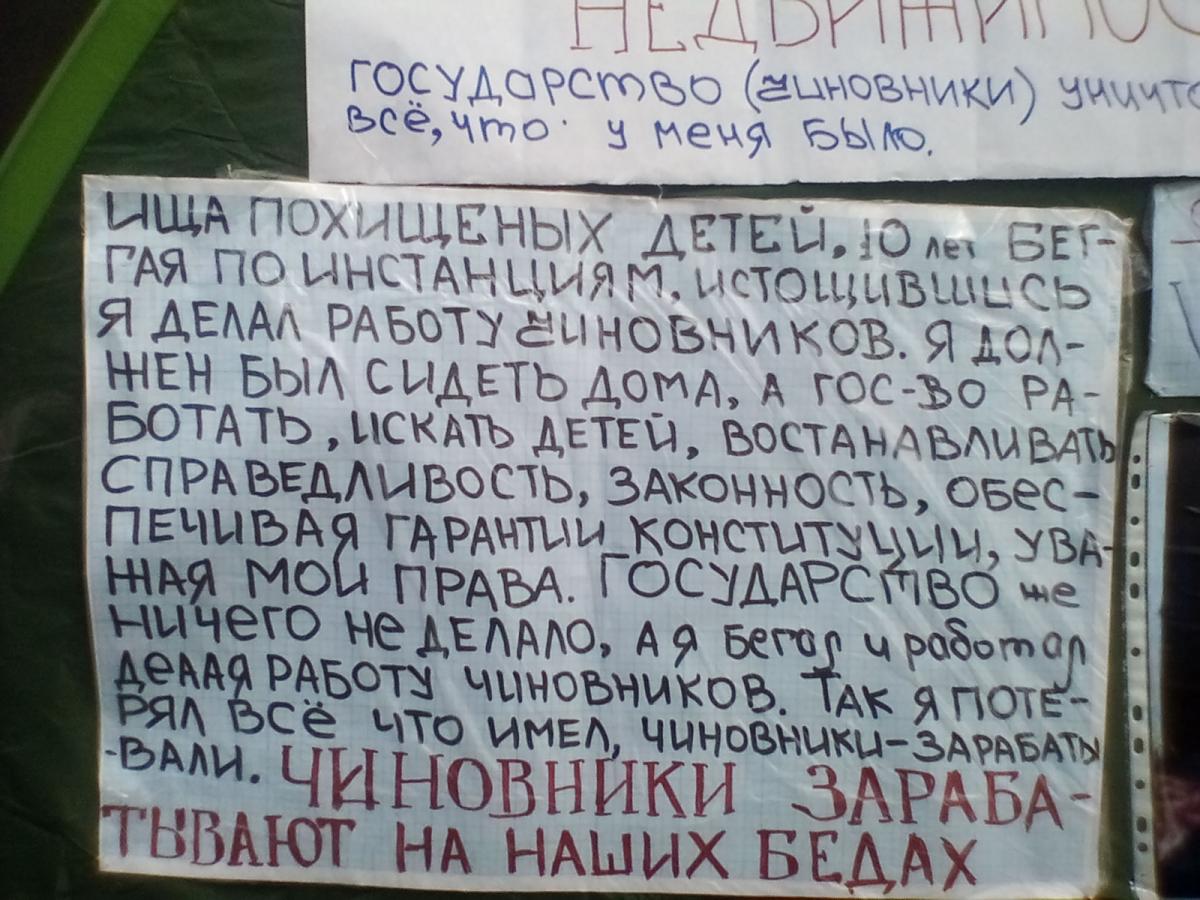 НЕДВИЖИМОС
ГОСУДАРСТВО (ЧИНОВНИКИ) УНИЧТО
ВСЁ, ЧТО У МЕНЯ БЫЛО.
ИЩА ПОХИЩЕНЫХ ДЕТЕЙ. 10 лет БЕГ-
ГАЯ ПО ИНСТАНЦИЯМ, ИСТОЩИВШИСЬ
Я ДЕЛАЛ РАБОТУ ЧИНОВНИКОВ. Я ДОЛ-
ЖЕН БЫЛ СИДЕТЬ ДОМА, А ГОС-ВО РА-
БОТАТЬ, ИСКАТЬ ДЕТЕЙ, ВОСТАНАВЛИВАТЬ
СПРАВЕДЛИВОСТЬ, ЗАКОННОСТЬ, ОБЕС-
ПЕЧИВАЯ ГАРАНТИИ КОНСТИТУЦИИ, УВА-
ЖАЯ МОИ ПРАВА. ГОСУДАРСТВО же
НИЧЕГО НЕ ДЕЛАЛО, А Я Бегал и работал
ДЕЛАЯ РАБОТУ ЧИНОВНИКОВ. ТАК Я ПОТЕ-
РЯЛ ВСЁ ЧТО ИМЕЛ, ЧИНОВНИКИ-ЗАРАБАТЫ
-ВАЛИ. ЧИНОВНИКИ ЗАРАБА-
ТЫВАЮТ НА НАШИХ БЕДАХ